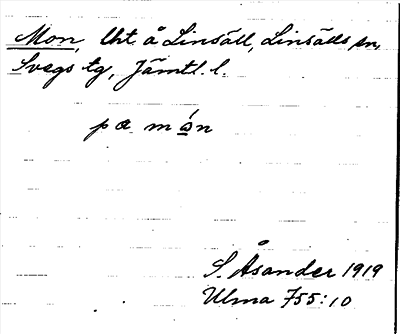 Mon, lht å Linsäll, Linsälls sn,
Svegs tg, Jämtl. l.
pa món
S. Åsander 1919
Ulma 755:10